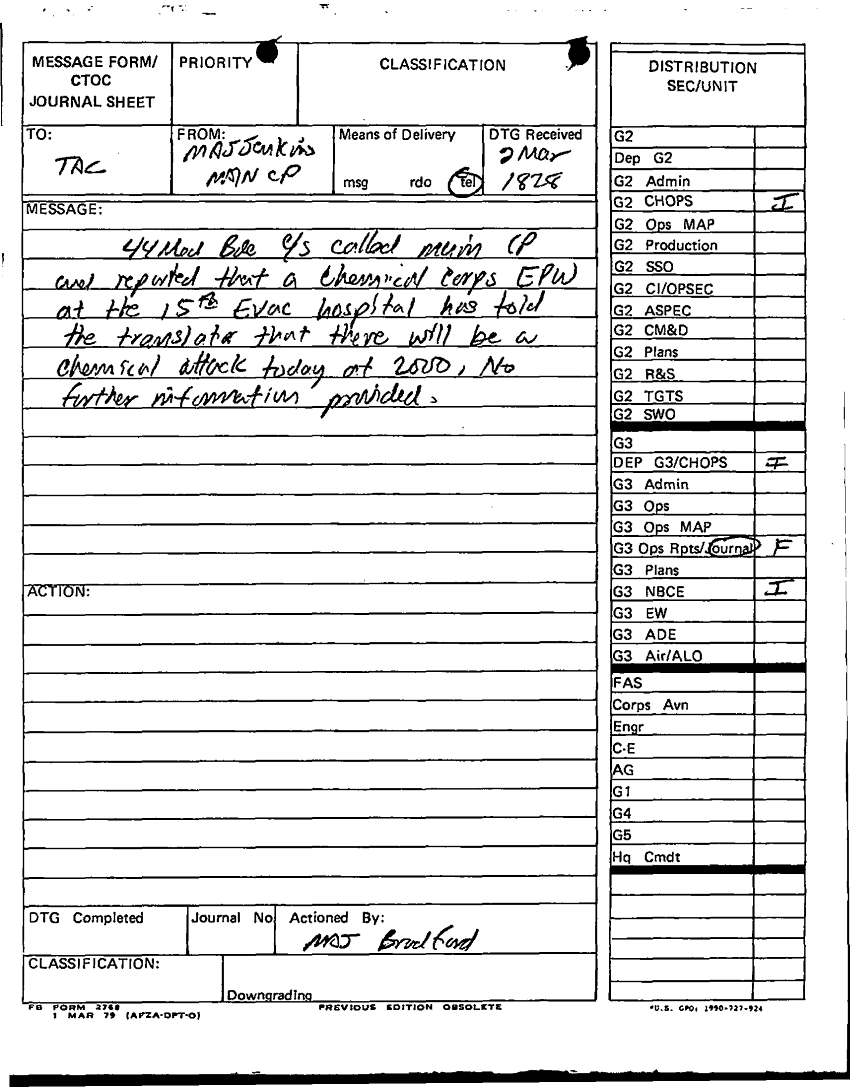 MESSAGE FORM/
CTOC
JOURNAL SHEET
PRIORITY
CLASSIFICATION
TO:
TAC
FROM:
MAJ Jenkins
MAIN CP
Means of Delivery
msg rdo tel
DTG Received
2 Mar
1828
MESSAGE:
44 Med Bde C/S called main CP
and reported that a Chemical Corps EPW
at the 15th Evac hospital has told
the translator that there will be a
chemical attack today at 2000, No
further information provided.
ACTION:
DTG Completed
Journal No
Actioned By:
MAJ Bradford
CLASSIFICATION:
Downgrading
FB FORM 2768
1 MAR 79 (AFZA-DPT-O)
PREVIOUS EDITION OBSOLETE
DISTRIBUTION
SEC/UNIT
G2
Dep G2
G2 Admin
G2 CHOPS I
G2 Ops MAP
G2 Production
G2 SSO
G2 CI/OPSEC
G2 ASPEC
G2 CM&D
G2 Plans
G2 R&S
G2 TGTS
G2 SWO
G3
DEP G3/CHOPS I
G3 Admin
G3 Ops
G3 Ops MAP
G3 Ops Rpts/Journal F
G3 Plans
G3 NBCE I
G3 EW
G3 ADE
G3 Air/ALO
FAS
Corps Avn
Engr
C-E
AG
G1
G4
G5
Hq Cmdt
*U.S. GPO: 1990-727-924